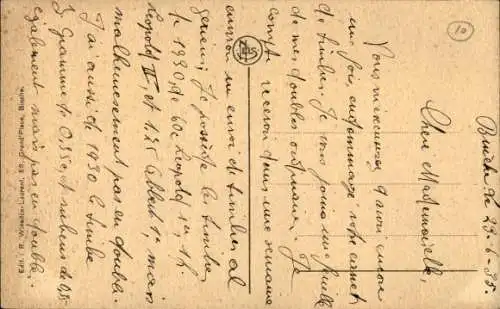 Binche le 23-6-35.
Chère Mademoiselle,
Vous m'excuserez d'avoir encore
une fois, endommagé votre carnet
de timbres. Je vous joins une feuille
de mes doubles ordinaires. Je
compte recevoir dans une semaine
environ un envoi de timbres al
Je possède les timbres
de 1930 de 60c Leopold 1er, 1f.
Leopold II, et 1.75 Albert 1er, mais
malheureusement pas en double.
J'ai aussi de 1930 le timbre
de 0,35c, et rubens de 0,35
également mais pas en double.
Edit. : B. Winance-Laurent, 58, Grand'Place, Binche.
10